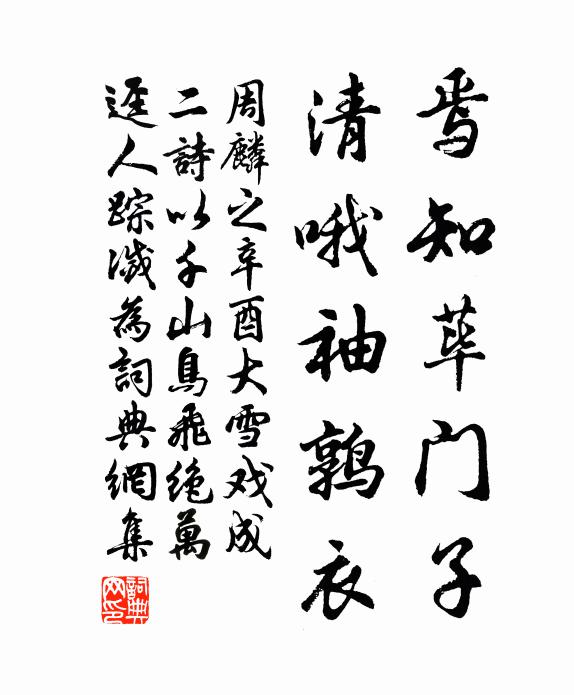 焉知蓽门子
清哦袖鶉衣
周麟之辛酉大雪戏成
二詩以千山鳥飛絶萬
逕人踪滅為詞典網集
詞典网印